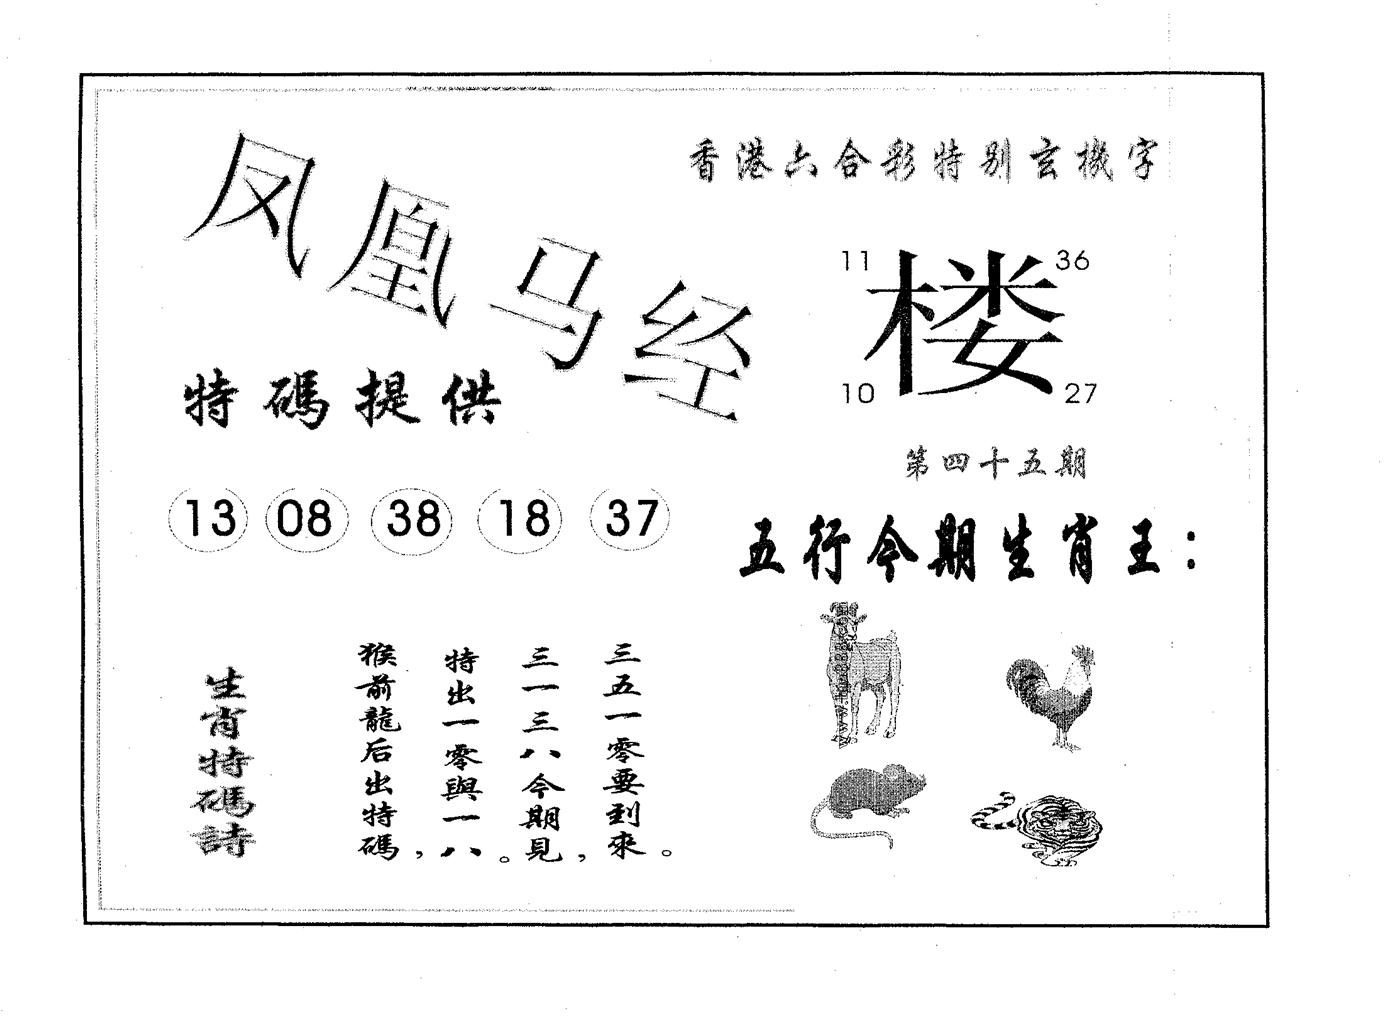 凤凰马经
香港六合彩特别玄機字
11
36
楼
10
27
特碼提供
第四十五期
13 08 38 18 37
五行今期生肖王：
生肖特碼詩
猴前龍后出特碼，
特出一零與一八。
三一三八今期見，
三五一零要到來。